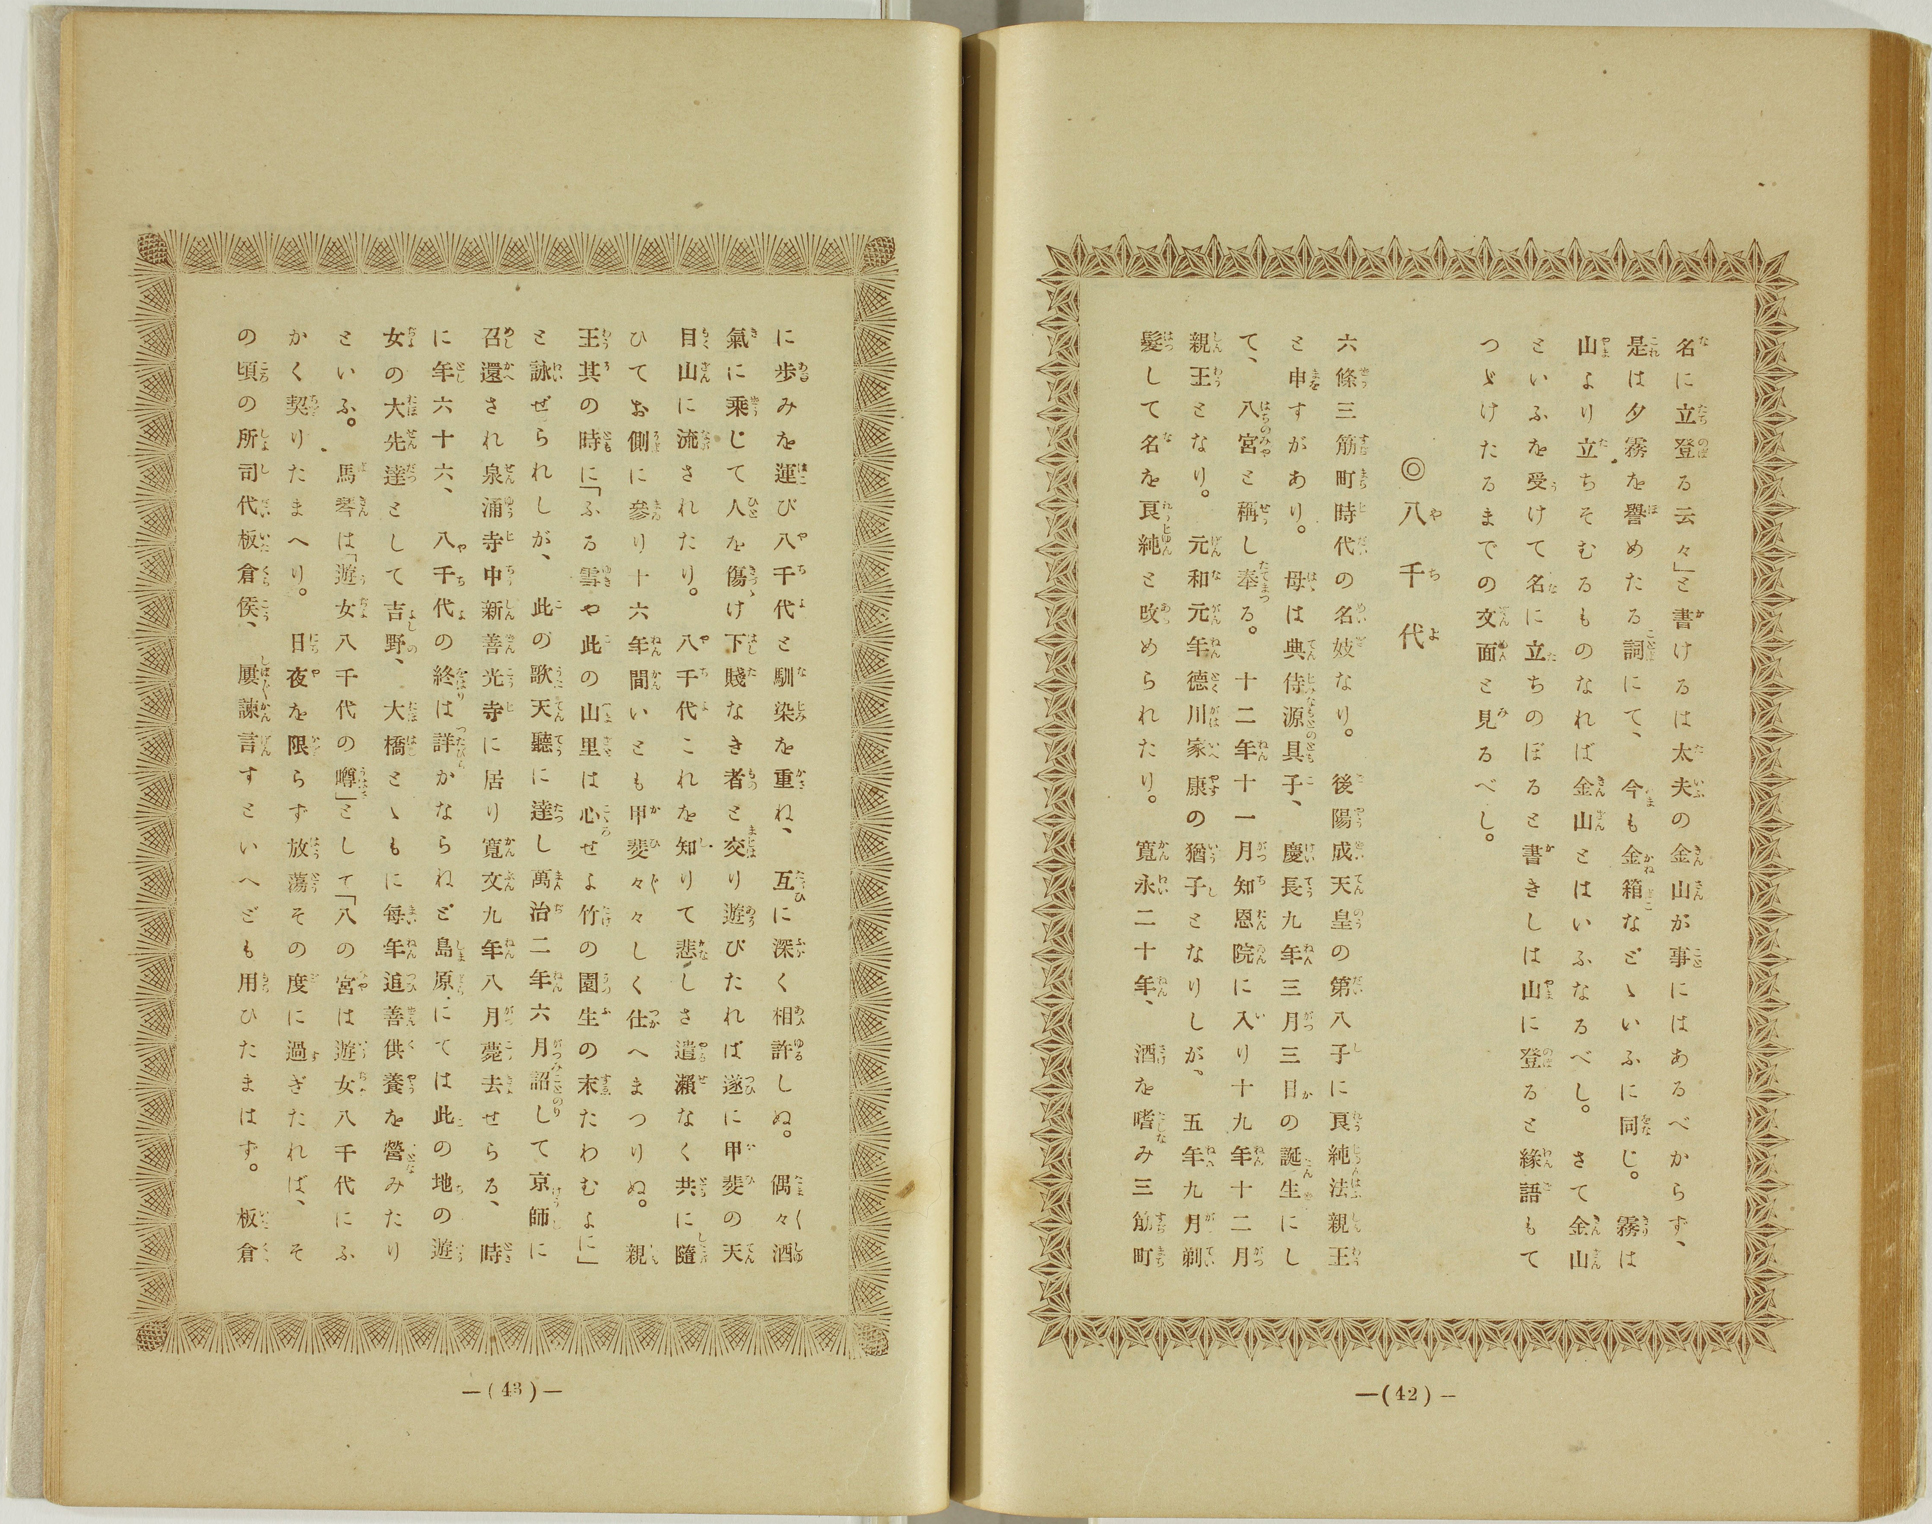 名に立登る云々」と書けるは太夫の金山が事にはあるべからず、
是は夕霧を譽めたる詞にて、今も金箱などゝいふに同じ。霧は
山より立ちそむるものなれば金山とはいふなるべし。さて金山
といふを受けて名に立ちのぼると書きしは山に登ると緣語もて
つゞけたるまでの文面と見るべし。
◎八千代
六條三筋町時代の名妓なり。後陽成天皇の第八子に良純法親王
と申すがあり。母は典侍源具子、慶長九年三月三日の誕生にし
て、八宮と稱し奉る。十二年十一月知恩院に入り十九年十二月
親王となり。元和元年德川家康の猶子となりしが、五年九月剃
髮して名を良純と改められたり。寬永二十年、酒を嗜み三筋町
—(42)—
に步みを運び八千代と馴染を重ね、互に深く相許しぬ。偶々酒
氣に乘じて人を傷け下賤なき者と交り遊びたれば遂に甲斐の天
目山に流されたり。八千代これを知りて悲しさ遣瀨なく共に隨
ひてお側に參り十六年間いとも甲斐々々しく仕へまつりぬ。親
王其の時に「ふる雪や此の山里は心せよ竹の園生の末たわむよに」
と詠ぜられしが、此の歌天聽に達し萬治二年六月詔して京師に
召還され泉涌寺中新善光寺に居り寬文九年八月薨去せらる、時
に年六十六、八千代の終は詳かならねど島原にては此の地の遊
女の大先達として吉野、大橋とゝもに每年追善供養を營みたり
といふ。馬琴は「遊女八千代の噂」として「八の宮は遊女八千代にふ
かく契りたまへり。日夜を限らず放蕩その度に過ぎたれば、そ
の頃の所司代板倉侯、屢諫言すといへども用ひたまはず。板倉
—(43)—